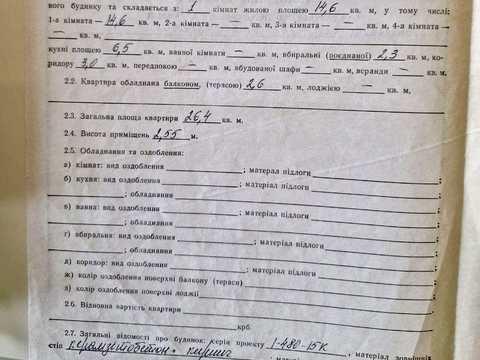 вого будинку та складається з: 1 кімнат жилою площею 14,6 кв. м, у тому числі:
1-а кімната — 14,6 кв. м, 2-а кімната — — кв. м, 3-я кімната — — кв. м, 4-а кімната —
— кв. м,
кухні площею 6,5 кв. м, ванної кімнати — кв. м, вбиральні (поєднаної) 2,3 кв. м, ко-
ридору 3,0 кв. м, передпокою — кв. м, вбудованої шафи — кв. м, веранди — кв. м.
2.2. Квартира обладнана балконом, (терасою) 2,6 кв. м, лоджією — кв. м.
2.3. Загальна площа квартири 26,4 кв. м.
2.4. Висота приміщень 2,55 м.
2.5. Обладнання та оздоблення:
а) кімнат: вид оздоблення ; матерал підлоги ;
б) кухня: вид оздоблення ; матеріал підлоги
; обладнання ;
в) ванна: вид оздоблення ; матеріал підлоги
; обладнання ;
г) вбиральня: вид оздоблення ; матеріал підлоги
; обладнання ;
д) коридор: вид оздоблення ; матеріал підлоги ;
ж) колір оздоблення поверхні балкону (тераси) ;
з) колір оздоблення поверхні лоджії
2.6. Відновна вартість квартири
крб.
2.7. Загальні відомості про будинок: серія проекту 1-480-15К
, матеріал зовнішніх
стін Керамзитобетон,